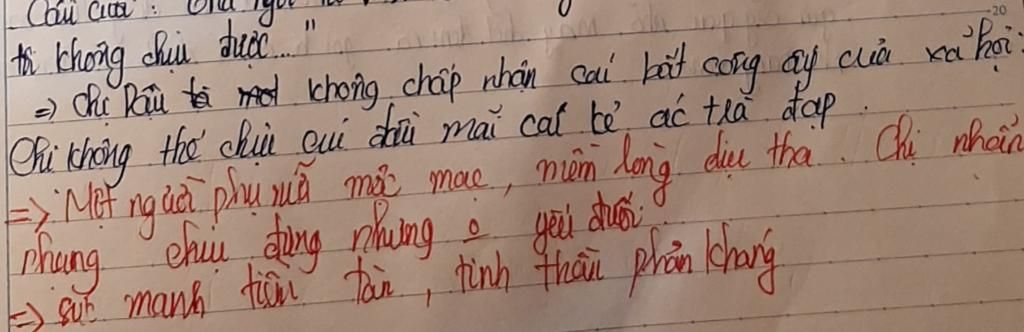 Câu cuối: "
tôi không chịu được..."
=> Chị Dậu không chấp nhận cái bất công ấy của xã hội.
Chị không thể chịu cúi đầu mãi cái bẻ ác trà đạp.
=> Một người phụ nữ mộc mạc, mềm lòng dịu tha. Chị nhẫn
nhung chịu đựng nhưng o yếu đuối.
=> sức mạnh tiềm tàn, tinh thần phản kháng